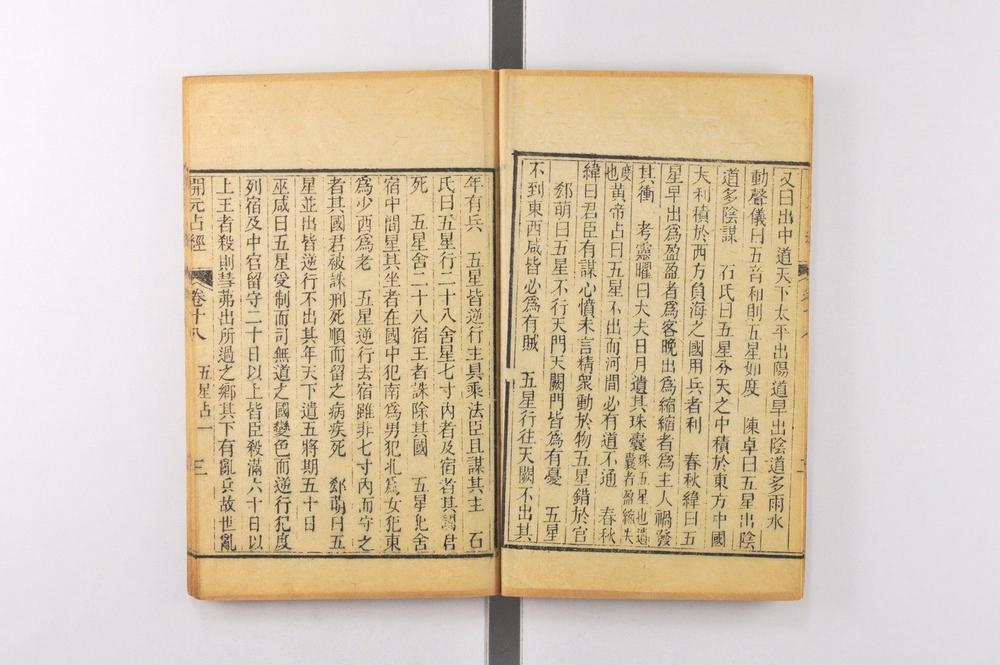 又曰出中道天下太平出陽道旱出陰道多雨水
動聲儀曰五音和則五星如度　陳卓曰五星出陰
道多陰謀　石氏曰五星分天之中積於東方中國
大利積於西方負海之國用兵者利　春秋緯曰五
星早出爲盈盈者爲客晚出爲縮縮者爲主人禍發
其衝　考靈曜曰大夫日月遺其珠囊珠五星也遺
囊者盈縮失度
也黃帝占曰五星不出而河間必有道不通　春秋
緯曰君臣有謀心憤未言精衆動於物五星錯於官
郄萌曰五星不行天門天關門皆爲有憂　五星
不到東西咸皆必爲有賊　五星行往天關不出其
年有兵　五星皆逆行主具乘法臣且謀其主　石
氏曰五星行二十八舍星七寸內者及宿者其國君
死　五星舍二十八宿王者誅除其國　五星犯舍
宿中間星其坐者在國中犯南爲男犯北爲女犯東
爲少西爲老　五星逆行去宿雖非七寸內而守之
者其國君被誅刑死順而留之病疾死　郄萌曰五
星並出皆逆行不出其年天下遣五將期五十日
巫咸曰五星受制而司無道之國變色而逆行犯度
列宿及中官留守二十日以上皆臣殺滿六十日以
上王者殺則彗茀出所過之鄉其下有亂兵故世亂
開元占經　卷十八　五星占一　三